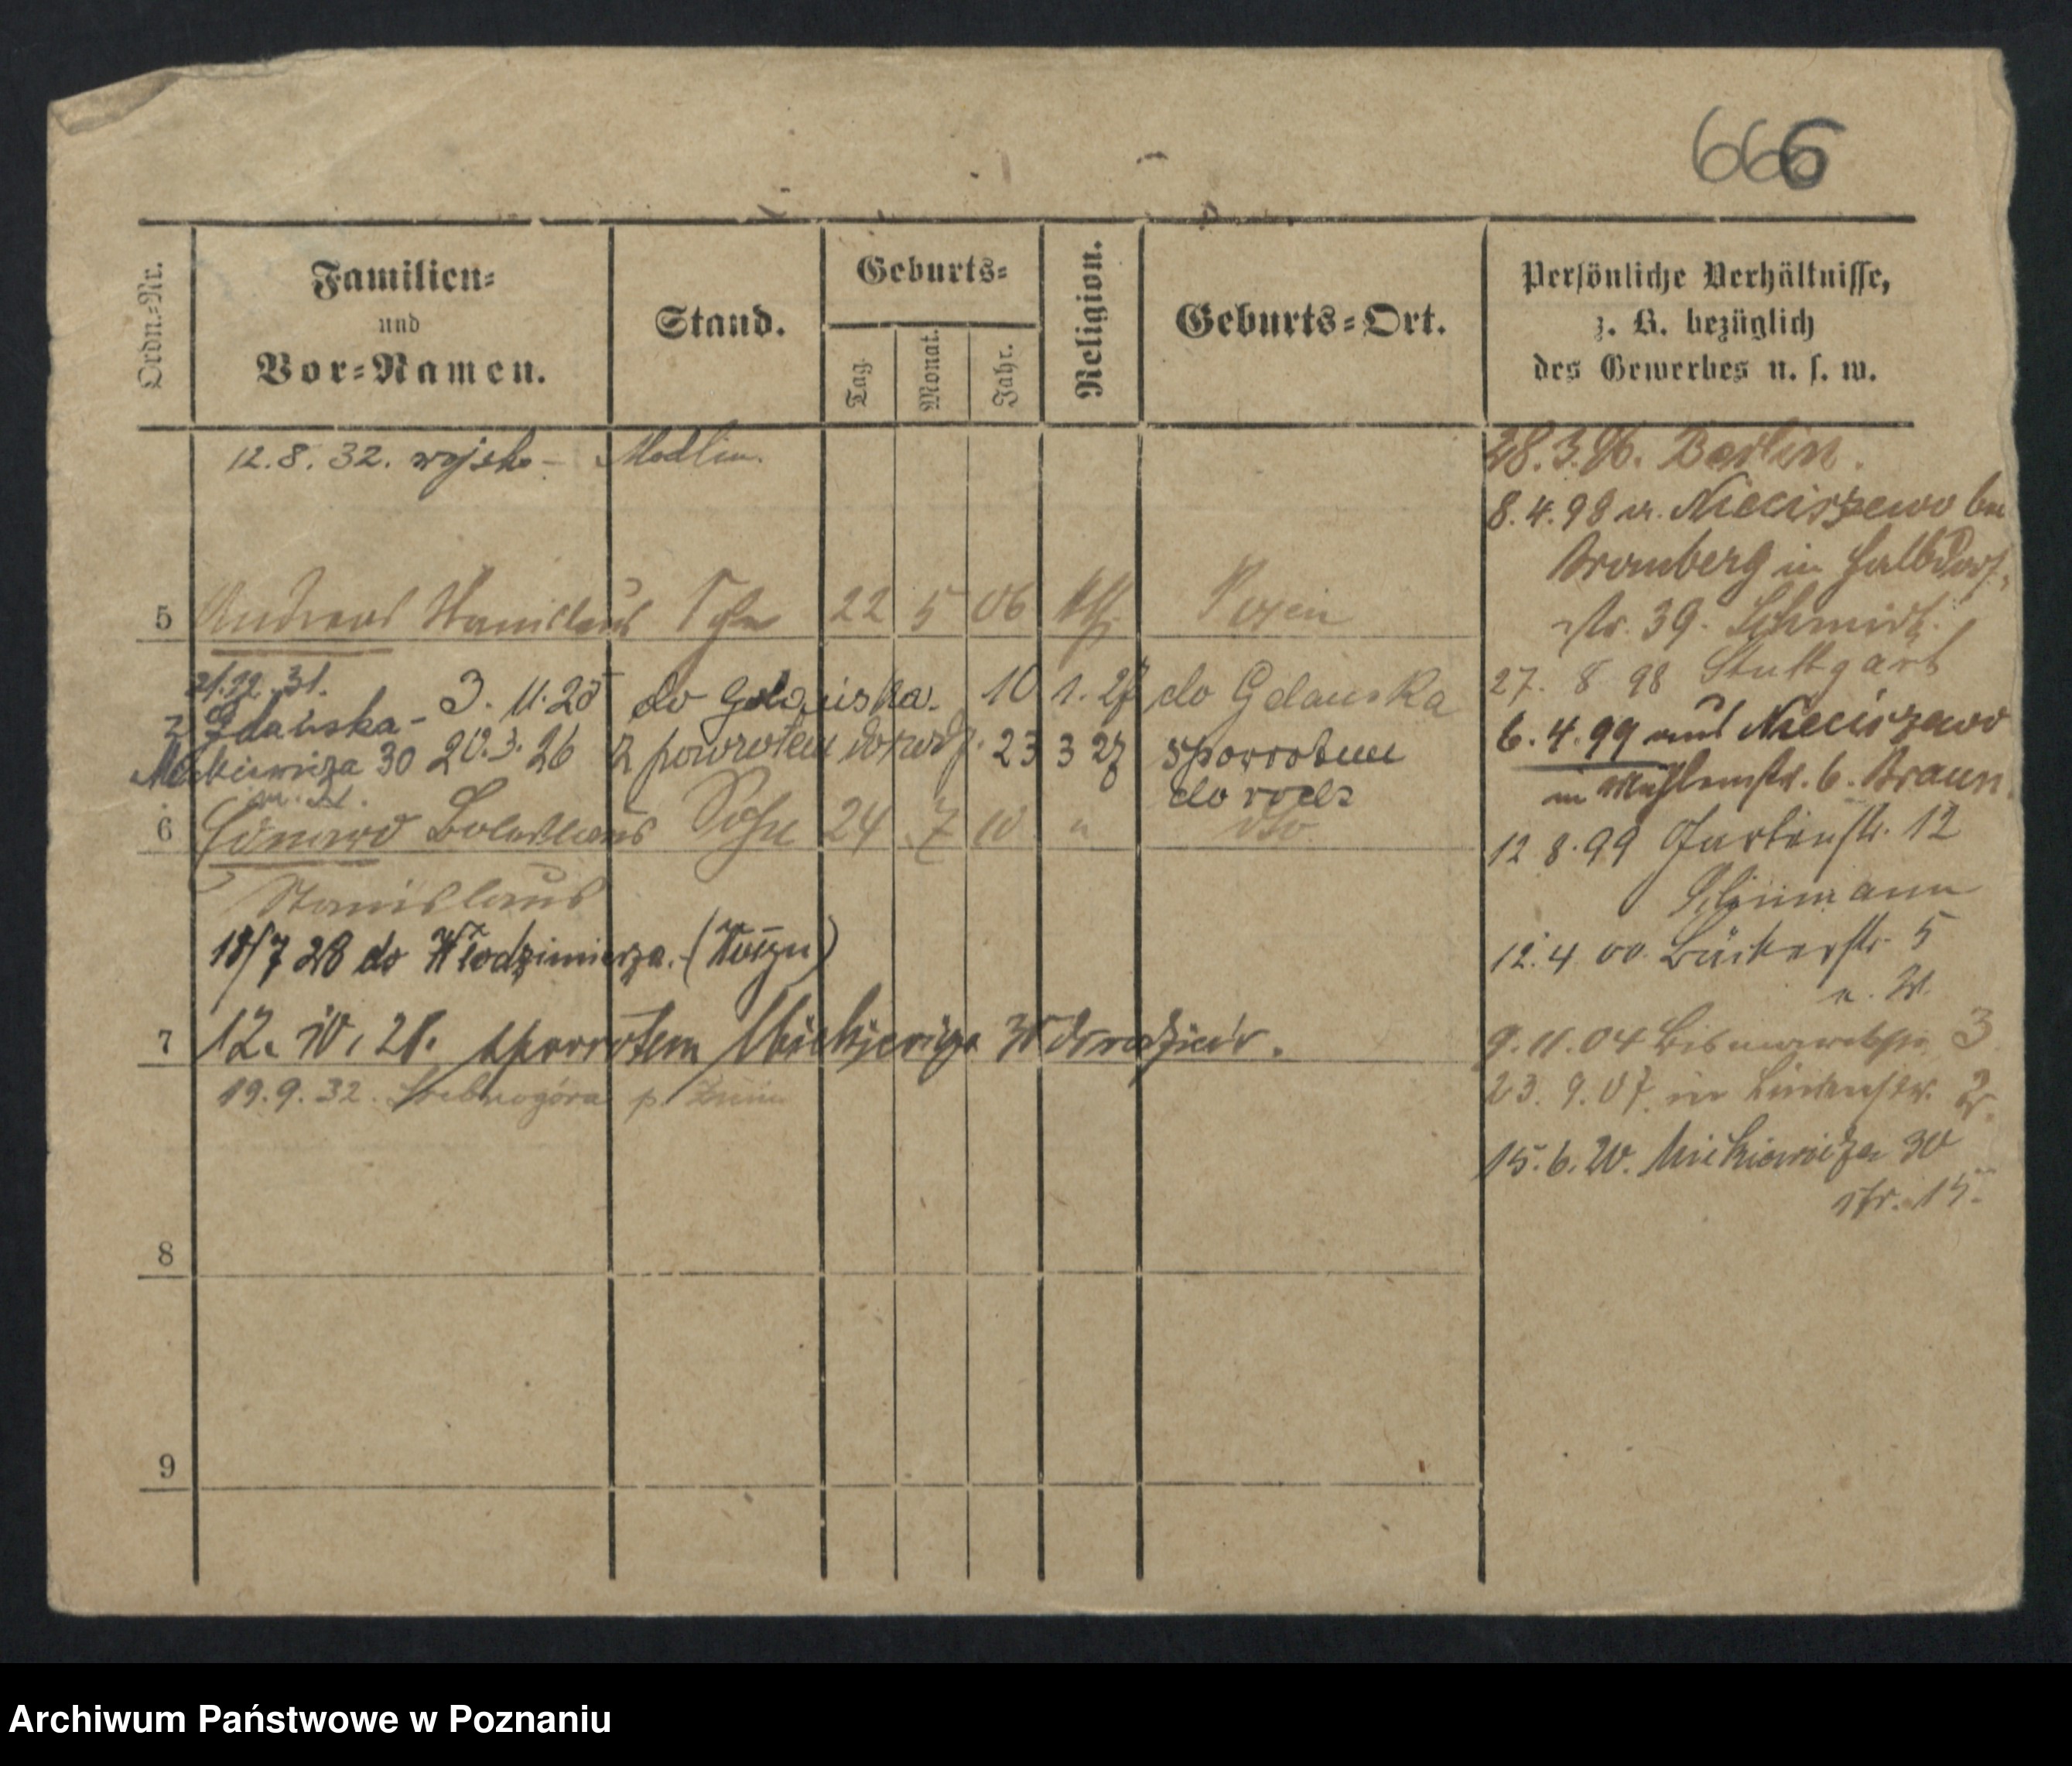 666
Ordn.-Nr.
Familien-
und
Vor-Namen.
Stand.
Geburts-
Tag.
Monat.
Jahr.
Religion.
Geburts-Ort.
Persönliche Verhältnisse,
z. B. bezüglich
des Gewerbes u. s. w.
12.8.32. wojsko - Modlin.
5 Andreas Stanislaus Sohn 22 5 06 Posen
21.12.31.
z Gdańska -
Mickiewicza 30
3.11.25 do Gdańska. 10 1. 27 do Gdanska
20.3.26 z powrotem do rodz. 23 3 27 spowrotem
do rodz
6 Eduard Boleslaus Sohn 24 7 10 " dto.
Stanislaus
18/7 28 do Włodzimierza.
7 12. 10. 28. spowrotem Mickiewicza 30 do rodziców.
19.9.32. Srebrnogóra p. Żnin
8
9
28.3.96. Berlin.
8.4.98 v. Nieciszewo bei
Bromberg in Halbdorf-
str. 39. Schmidt.
27. 8 98 Stuttgart
6.4.99 aus Nieciszewo
in Mühlenstr. 6. Braun.
12 8.99 Gartenstr. 12
12.4 00. Bäckerstr. 5
9.11.04 Bismarckstr. 3
23. 9.07. in Lindenstr. 2.
15.6.20. Mickiewicza 30
str. 15.
Archiwum Państwowe w Poznaniu